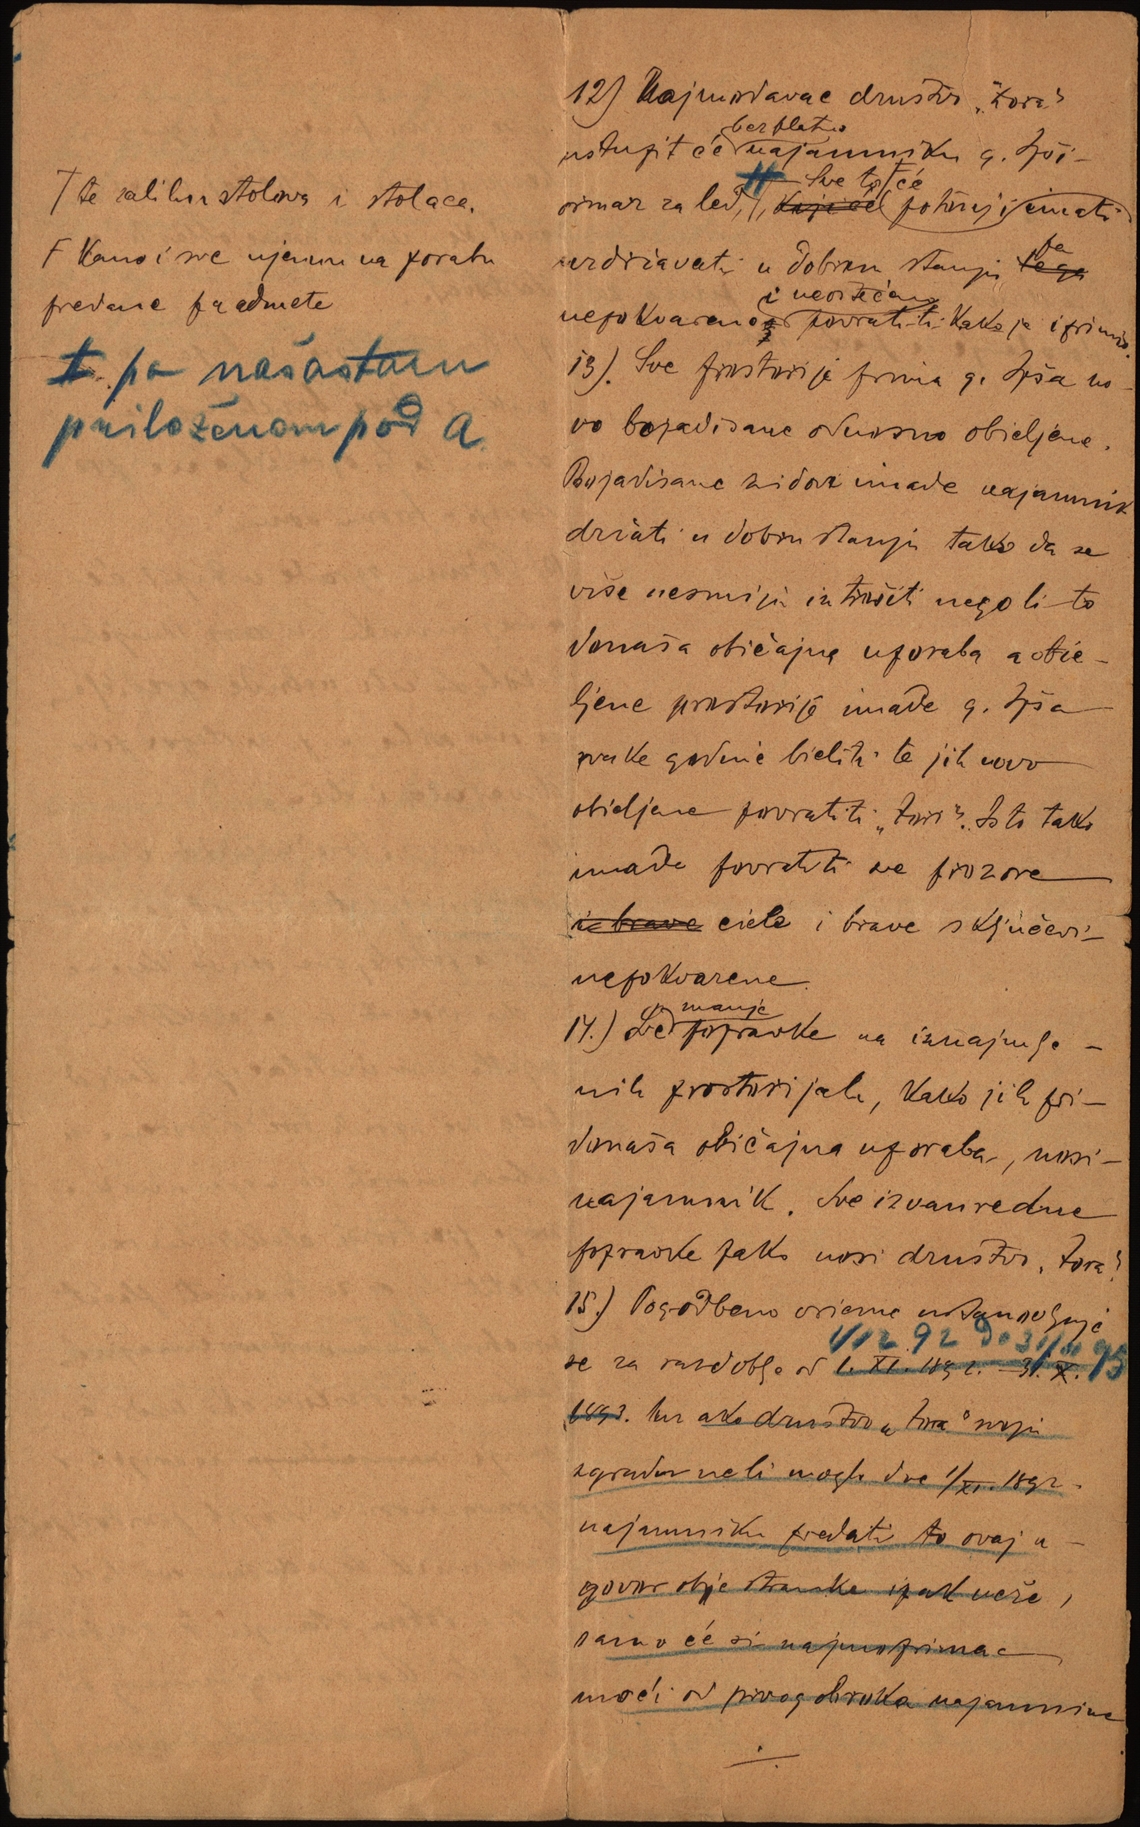 te zalihu stolova i stolaca.
Kano i sve njemu na porabu
predane predmete
po našastaru
priloženom pod A.
12) Najmodavac družtvo „Zora“
bezplatno
ustupit će najamniku g. Špi-
Sve to će
ormar za led, koji će potonji imati
uzdržavati u dobrom stanju te ga
i neoštećeno
nepokvareno povratiti kako je i primio.
13). Sve prostorije prima g. Špša no-
vo bojadisane odnosno obieljene.
Bojadisane zidove imade najamnik
držati u dobru stanju tako da se
više nesmiju iztrošiti negoli to
donaša običajna uporaba a obie-
ljene prostorije imade g. Špša
svake godine bieliti te jih novo
obieljene povratiti „Zori“. Isto tako
imade povratiti sve prozore
i brave ciele i brave s ključevi
nepokvarene.
manje
14.) Sve popravke na iznajmlje-
nih prostorijah, kako jih pri-
donaša običajna uporaba, nosi
najamnik. Sve izvanredne
popravke pako nosi družtvo „Zora“
15.) Pogodbeno vrieme ustanovljuje
1/12 92 do 31/10 95
se za razdoblje od 1. XI. 1892. – 31. X.
1893. Nu ako družtvo „Zora“ svoju
zgradu nebi mogla dne 1/XI. 1892.
najamniku predati to ovaj u-
govor obje stranke ipak veže,
samo će si najmoprimac
moći od prvog obroka najamnine